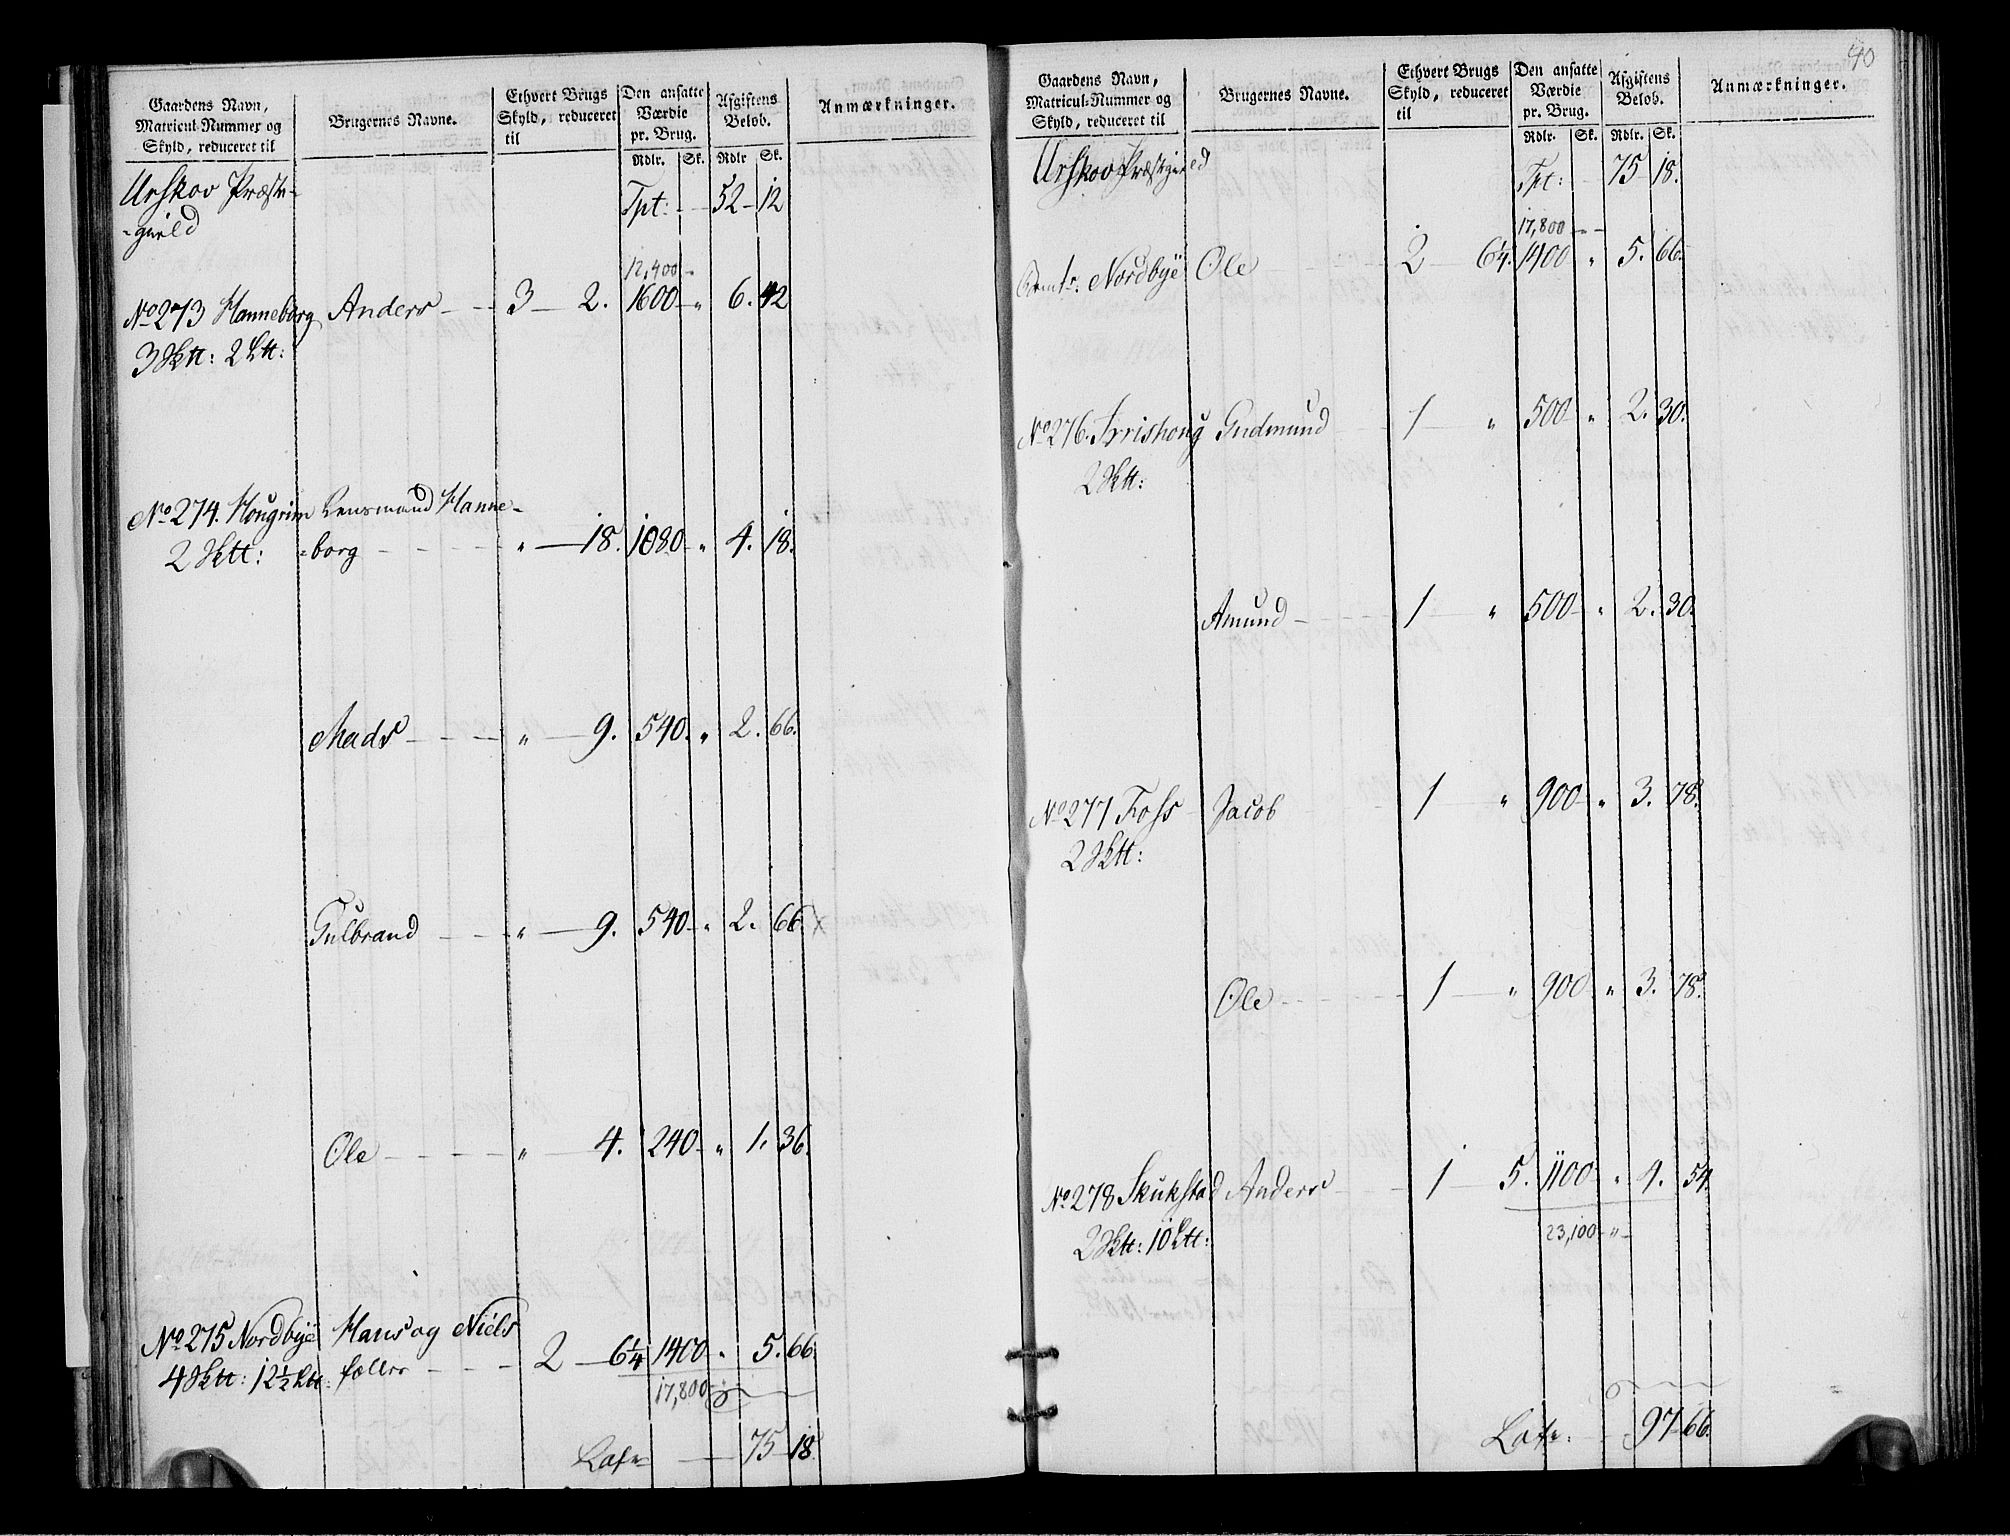 Gaardens Navn, Matricul-Nummer og Skyld, reduceret til | Brugernes Navne. | Ethvert Brugs Skyld, reduceret til | Den ansatte Værdie pr. Brug. Rdlr. Sk. | Afgiftens Beløb. Rdlr Sk. | Anmærkninger.
Urskov Præste-
-gield Tpt: 52 - 12
12,400 -
No 273 Hanneborg Anders 3 - 2. 1600 - " 6. 42
3 Sktt: 2 Ltt:
No 274. Hougrim Lensmand Hanne-
2 Sktt: -borg " - 18. 1080 - " 4. 18.
Mads " - 9. 540. " 2. 66.
Gulbrand " - 9. 540 - " 2. 66. X
Ole " - 4. 240 - " 1. 36.
No 275 Nordbye Hans og Niels
4 Sktt: 12½ Ltt: fælles 2 - 6¼ 1400 " 5. 66.
17,800 -
Lats 75 - 18.
40
Gaardens Navn, Matricul-Nummer og Skyld, reduceret til | Brugernes Navne. | Ethvert Brugs Skyld, reduceret til | Den ansatte Værdie pr. Brug. Rdlr. Sk. | Afgiftens Beløb. Rdlr. Sk. | Anmærkninger.
Urskov Præstegield Tpt: 75 - 18.
17,800 -
Nordbye Ole 2 6¼. 1400 " 5. 66.
No 276. Gudmund 1 " 500 " 2. 30.
2 Sktt:
Amund 1 " 500 - " 2. 30.
No 277 Foss Jacob 1 " 900 - " 3. 78.
2 Sktt:
Ole 1 " 900 " 3. 78.
No 278 Skukstad Anders 1 5. 1100 " 4. 54.
2 Sktt: 10 Ltt: 23,100 - " -
Lats: 97 - 66.